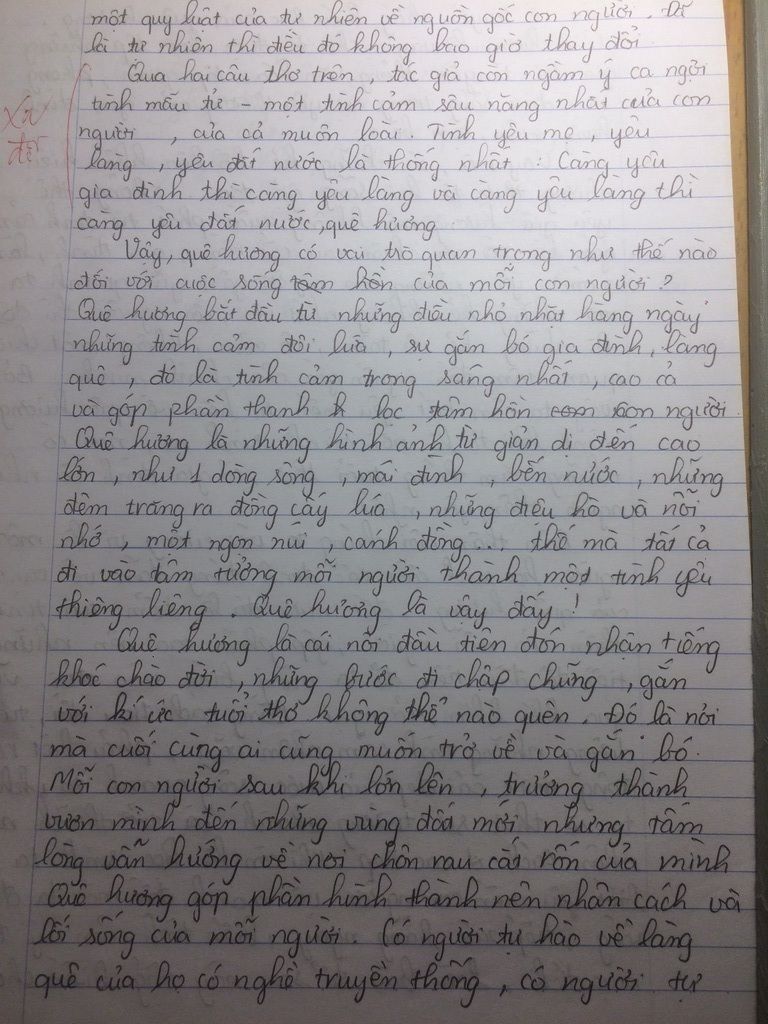 một quy luật của tự nhiên về nguồn gốc con người. Đã
là tự nhiên thì điều đó không bao giờ thay đổi.
Qua hai câu thơ trên, tác giả còn ngầm ý ca ngợi
tình mẫu tử - một tình cảm sâu nặng nhất của con
người, của cả muôn loài. Tình yêu mẹ, yêu
làng, yêu đất nước là thống nhất: Càng yêu
gia đình thì càng yêu làng và càng yêu làng thì
càng yêu đất nước, quê hương
Vậy, quê hương có vai trò quan trọng như thế nào
đối với cuộc sống tâm hồn của mỗi con người?
Quê hương bắt đầu từ những điều nhỏ nhặt hàng ngày
những tình cảm đôi lứa, sự gắn bó gia đình, làng
quê, đó là tình cảm trong sáng nhất, cao cả
và góp phần thanh lọc tâm hồn con người.
Quê hương là những hình ảnh từ giản dị đến cao
lớn, như 1 dòng sông, mái đình, bến nước, những
đêm trăng ra đồng cấy lúa, những điệu hò và nỗi
nhớ, một ngọn núi, cánh đồng... thế mà tất cả
đi vào tâm tưởng mỗi người thành một tình yêu
thiêng liêng. Quê hương là vậy đấy!
Quê hương là cái nôi đầu tiên đón nhận tiếng
khóc chào đời, những bước đi chập chững, gắn
với kí ức tuổi thơ không thể nào quên. Đó là nơi
mà cuối cùng ai cũng muốn trở về và gắn bó.
Mỗi con người sau khi lớn lên, trưởng thành
vươn mình đến những vùng đất mới nhưng tấm
lòng vẫn hướng về nơi chôn rau cắt rốn của mình
Quê hương góp phần hình thành nên nhân cách và
lối sống của mỗi người. Có người tự hào về làng
quê của họ có nghề truyền thống, có người tự